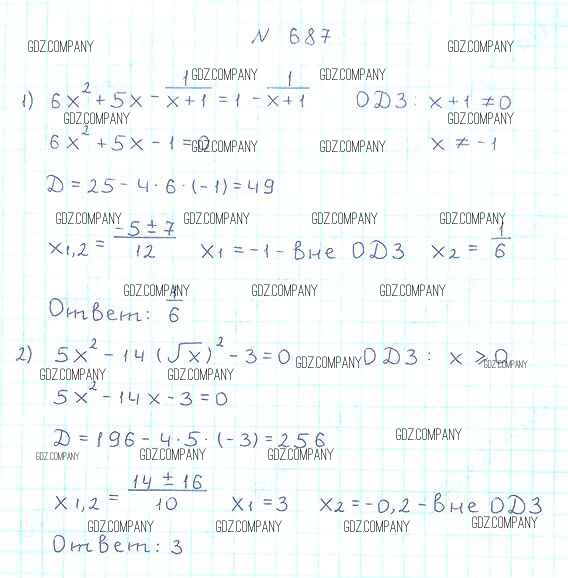 N 687
GDZ.COMPANY GDZ.COMPANY
GDZ.COMPANY GDZ.COMPANY
1) 6x² + 5x - 1/(x+1) = 1 - 1/(x+1) ОДЗ: x+1 ≠ 0
GDZ.COMPANY GDZ.COMPANY
6x² + 5x - 1 = 0 x ≠ -1
GDZ.COMPANY GDZ.COMPANY
D = 25 - 4·6·(-1) = 49
GDZ.COMPANY GDZ.COMPANY GDZ.COMPANY GDZ.COMPANY
x1,2 = (-5 ± 7)/12 x1 = -1 - вне ОДЗ x2 = 1/6
GDZ.COMPANY GDZ.COMPANY GDZ.COMPANY
Ответ: 1/6
2) 5x² - 14(√x)² - 3 = 0 ОДЗ: x ≥ 0
GDZ.COMPANY GDZ.COMPANY
GDZ.COMPANY GDZ.COMPANY
5x² - 14x - 3 = 0
D = 196 - 4·5·(-3) = 256
GDZ.COMPANY
GDZ.COMPANY GDZ.COMPANY GDZ.COMPANY
x1,2 = (14 ± 16)/10 x1 = 3 x2 = -0,2 - вне ОДЗ
GDZ.COMPANY GDZ.COMPANY GDZ.COMPANY GDZ.COMPANY
Ответ: 3